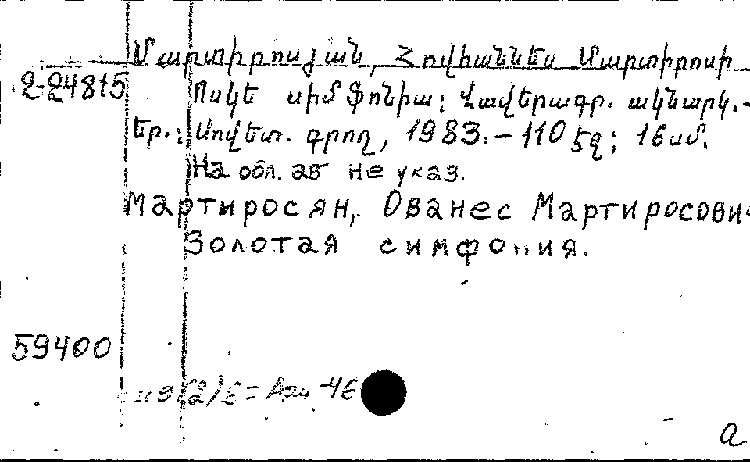 Մարտիրոսյան, Հովհաննես Մարտիրոսի
2-24815
Ոսկե սիմֆոնիա: Վավերագր. ակնարկ.-
Եր.: Սովետ. գրող, 1983.-110 էջ; 16 սմ.
На обл. авт не указ.
Мартиросян, Ованес Мартиросович
Золотая симфония.
59400
а